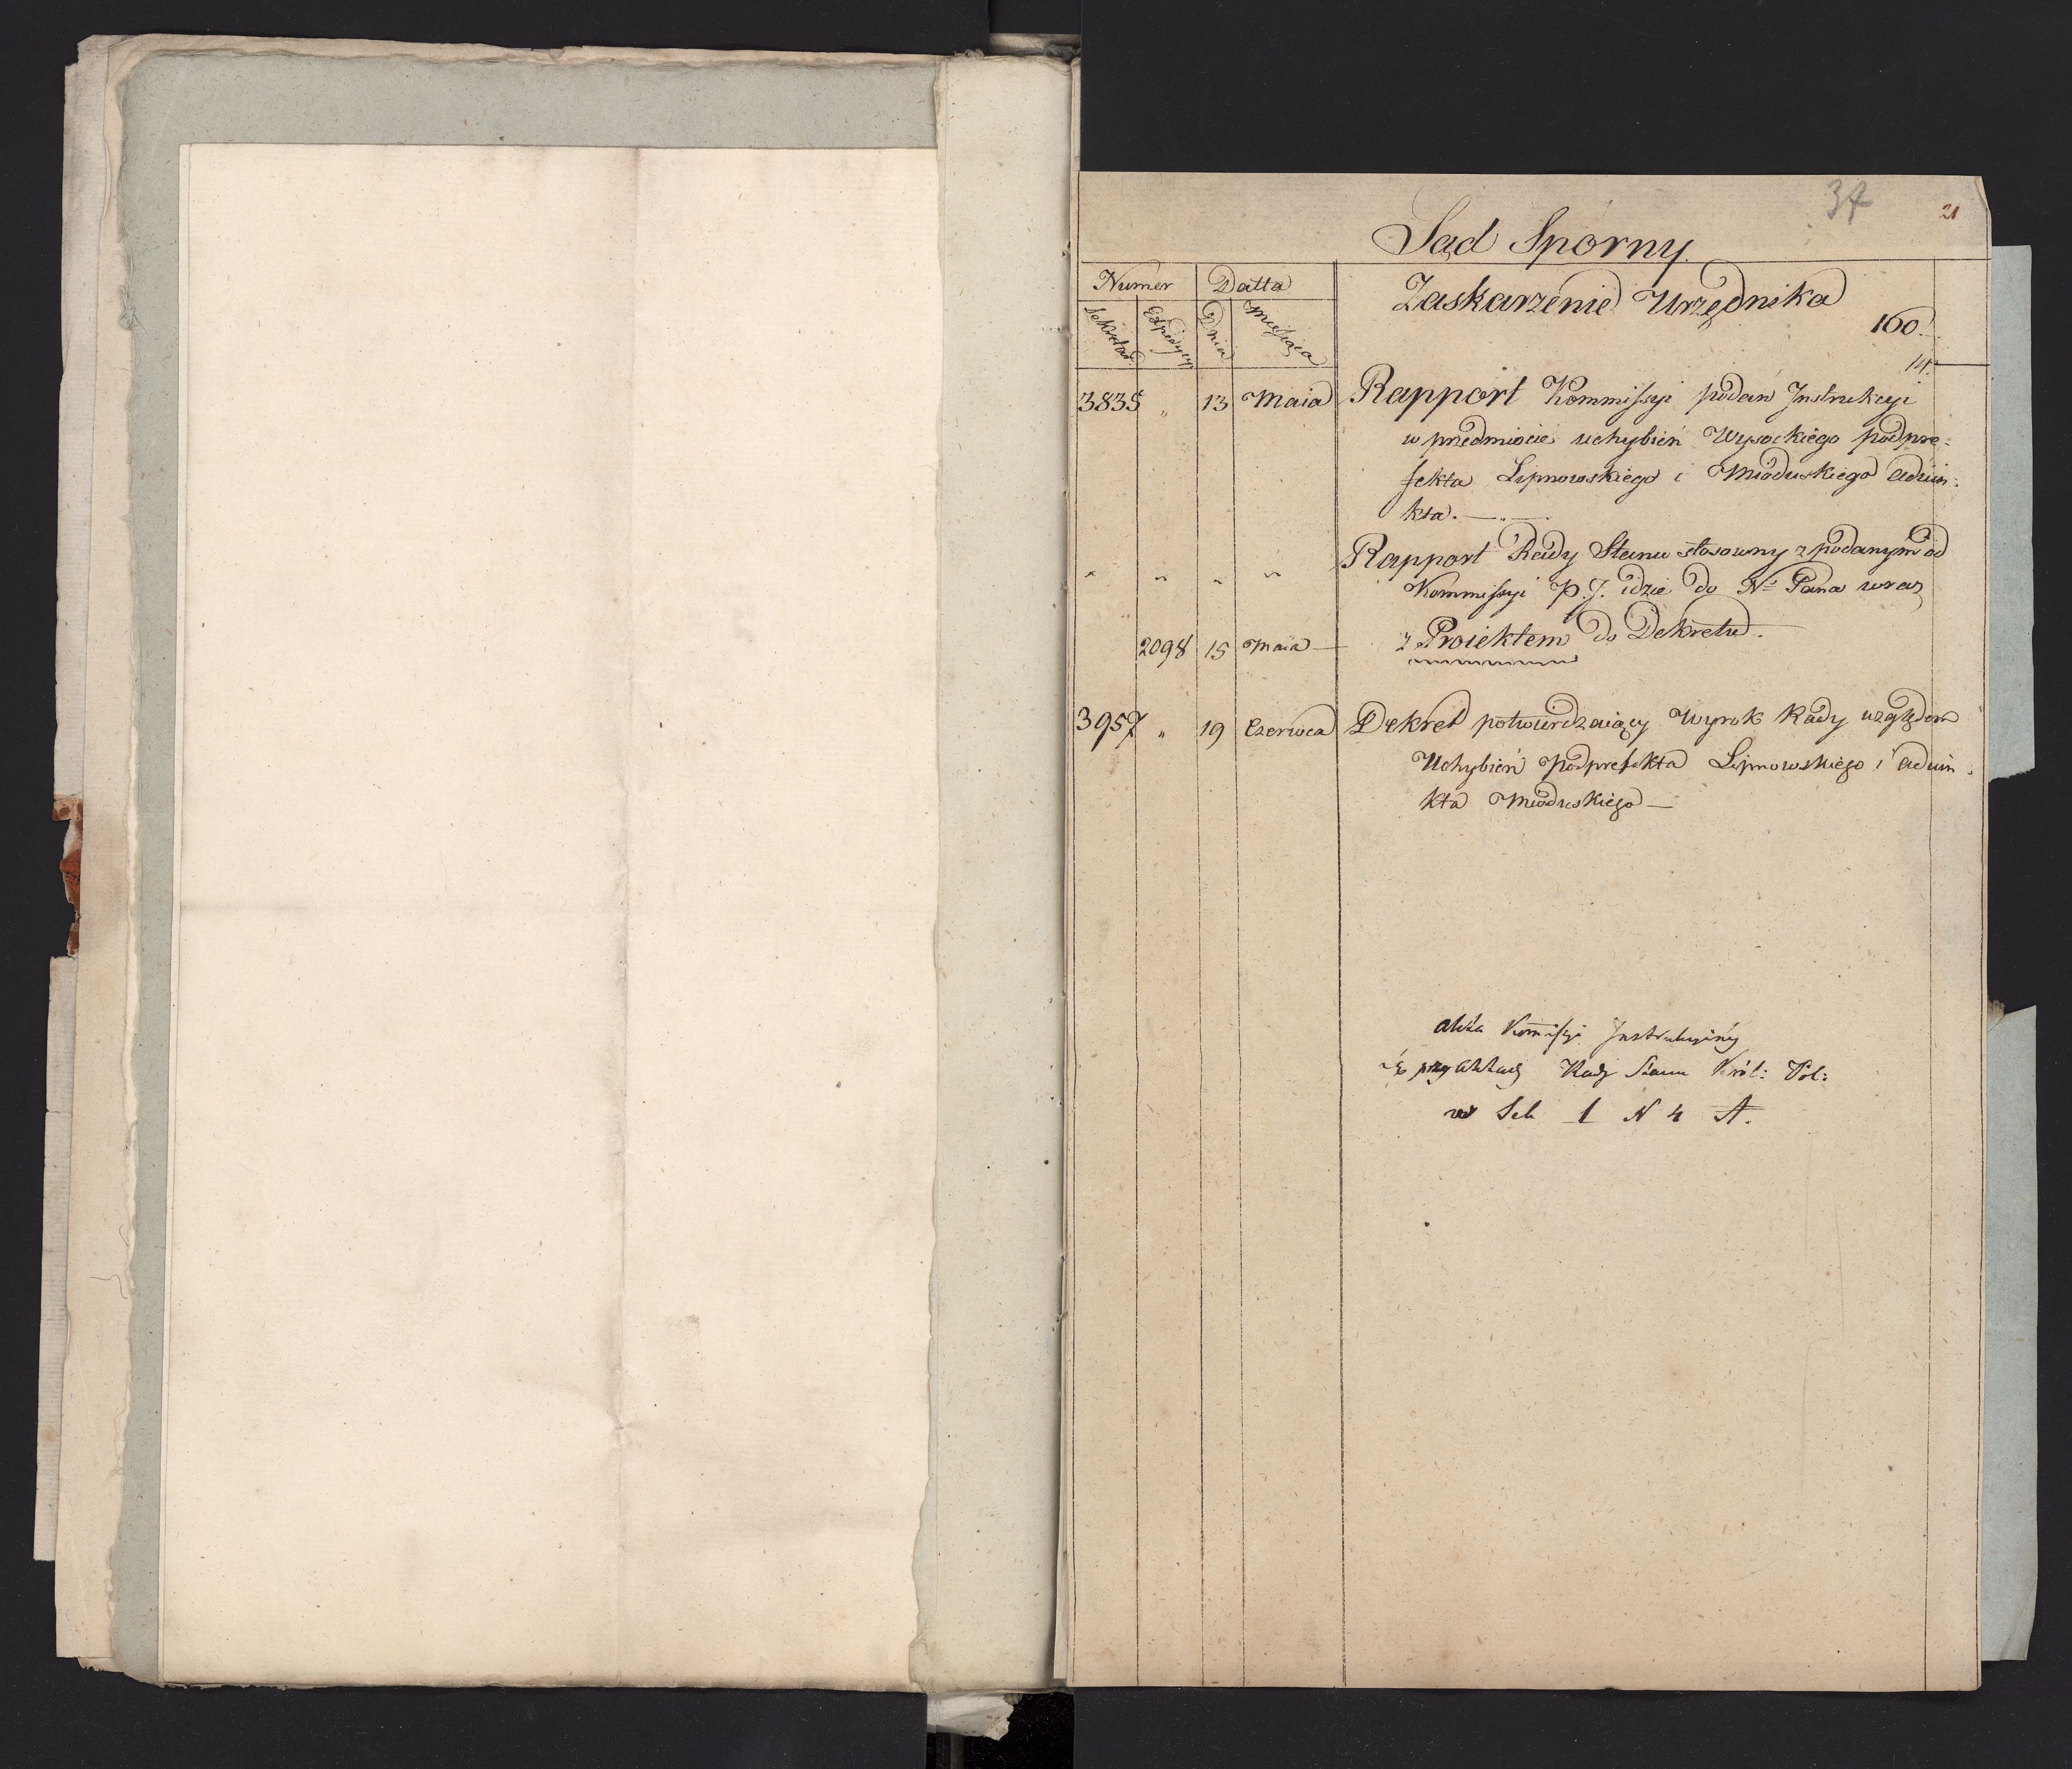 37
21
Sąd Sporny.
Numer Datta
Zaskarżenie Urzędnika
160.
Sekretar. Expedycyi Dnia Miesiąca
14.
3835 „ 13 Maia Rapport Kommissyi podań Instrukcyi
w przedmiocie uchybień Wysockiego podpre-
fekta Lipnowskiego i Mioduskiego adiun-
kta. — „ —
„ „ „ „ Rapport Rady Stanu stosowny z podanym od
Kommissyi P. J. idzie do Nº Pana wraz
2098 15 Maia — z Proiektem do Dekretu. —
3957 „ 19 Czerwca Dekret potwierdzaiący Wyrok Rady względem
Uchybień podprefekta Lipnowskiego i adiun-
kta Mioduskiego —
akta Komissyi Instrukcyiney
przy aktach Rady Stanu Król: Pol:
w Seh 1 N 4 A.